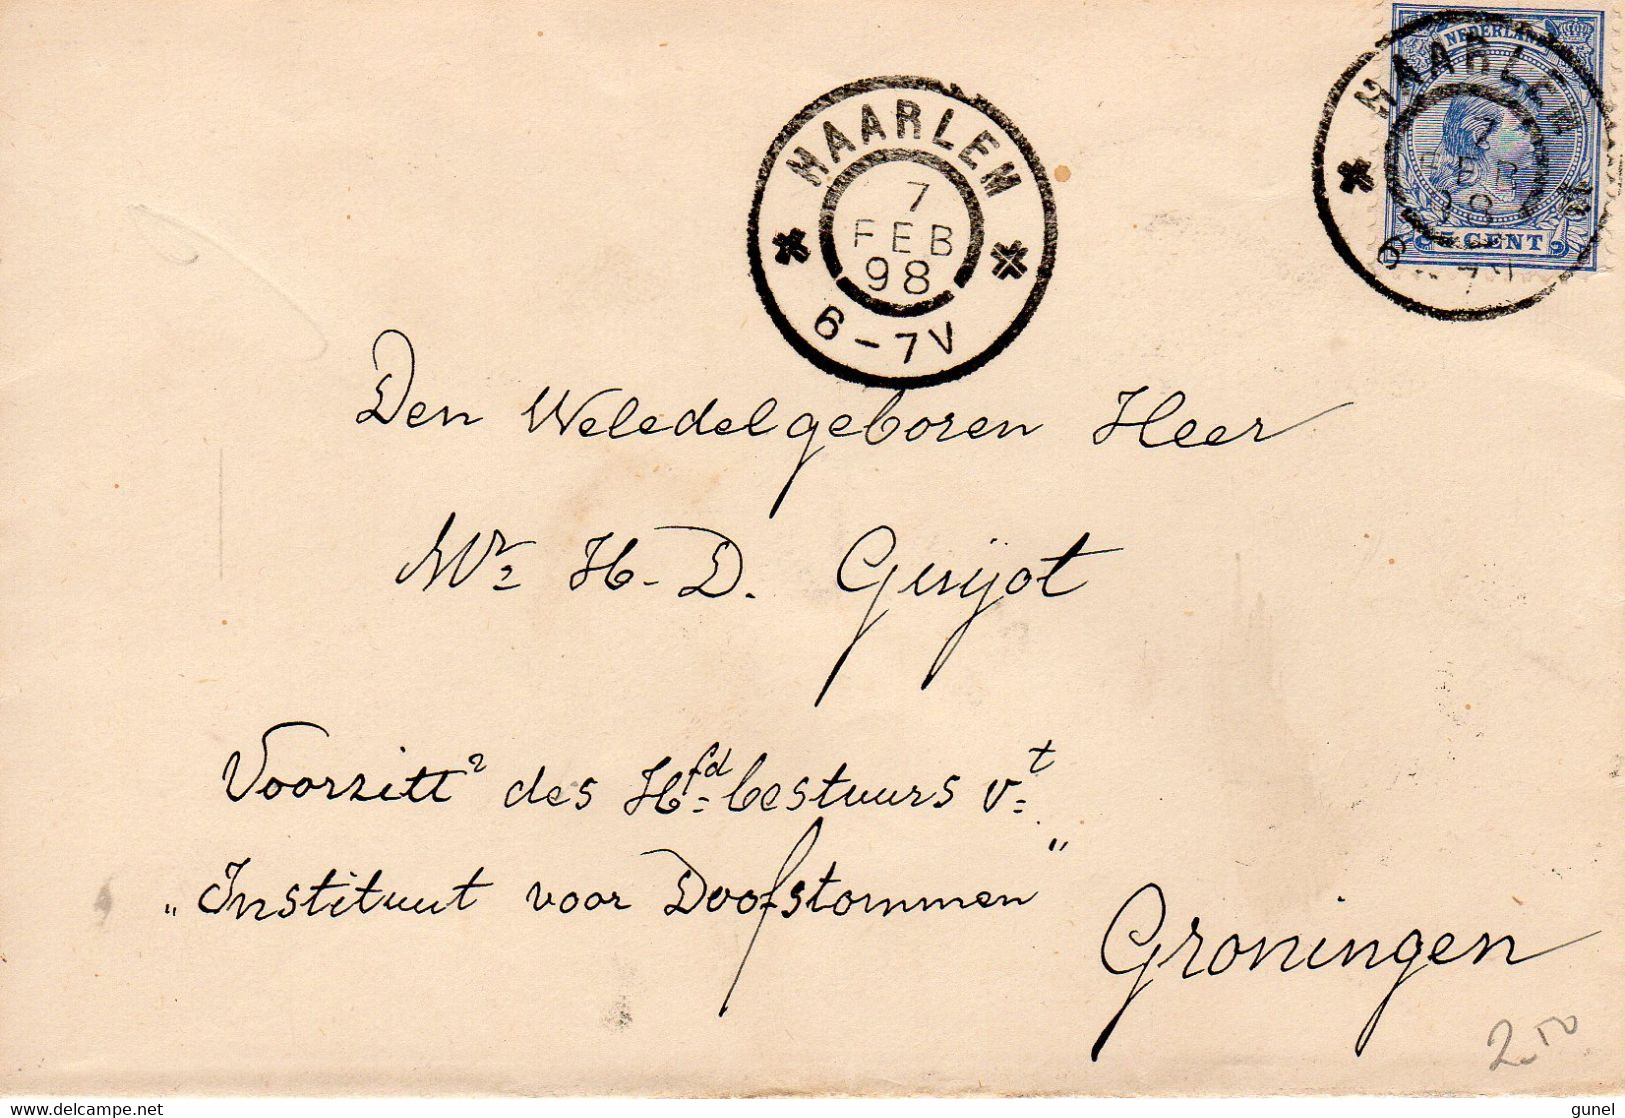 NEDERLAND
HAARLEM
7
FEB
98
6-7V
5 CENT
HAARLEM
7
FEB
98
6-7V
Den Weledelgeboren Heer
Mr H. D. Guyot
Voorzittr des Hfdbestuurs vt
„Instituut voor Doofstommen"
Groningen
2.50
https://www.delcampe.net
gunel